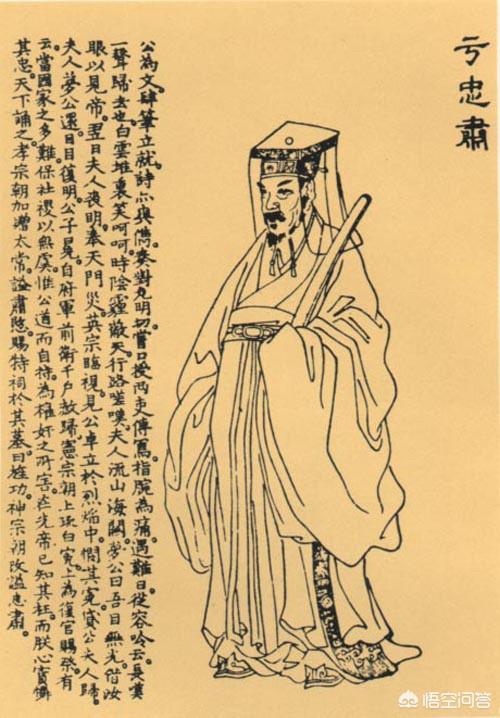 亏忠肅
公為文肆筆立就。詩亦與儁。奏對尤明切。嘗口授两吏傳寫。指腕為痛。遇難日從容吟云。長嘆
一聲歸去也。白雲堆裏笑呵呵。時陰霾蔽天。行路嗟嘆。夫人流山海關。夢公曰。吾目無光。借汝
眼以見帝。翌日夫人喪明。奉天門災。英宗臨視。見公卓立於烈焰中。憫其冤。貸公夫人歸。
夫人夢公還目。目復明。公子冕自府軍前衛千戶赦歸。憲宗朝上疏白寃。上為復官賜祭。有
云當國家之多難。保社稷以無虞。惟公道而自持。為權奸之所害。在先帝已知其枉。而朕心實憐
其忠。天下誦之。孝宗朝加贈太常。謚肅愍。賜特祠於其墓曰旌功。神宗朝改謚忠肅。
悟空问答